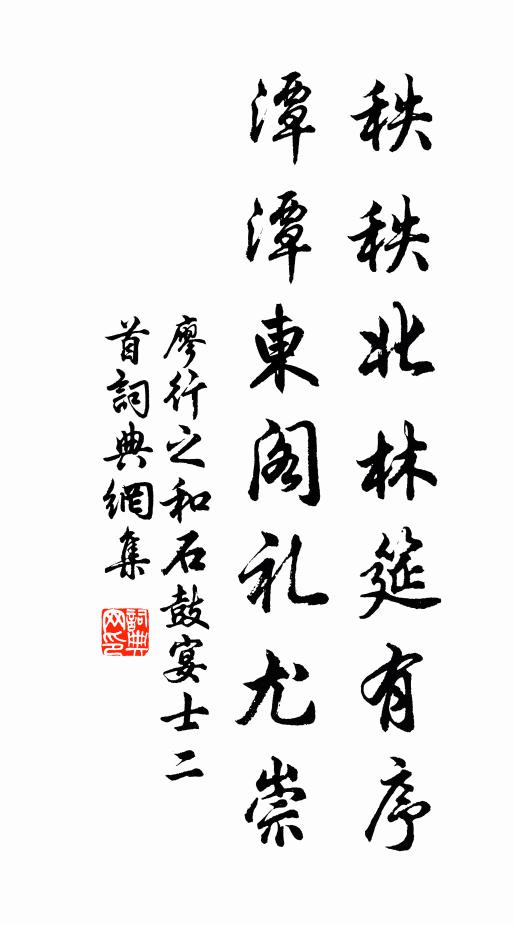 秩秩北林筵有序
潭潭東阁礼尤崇
廖行之和石鼓宴士二
首詞典網集
詞典網印